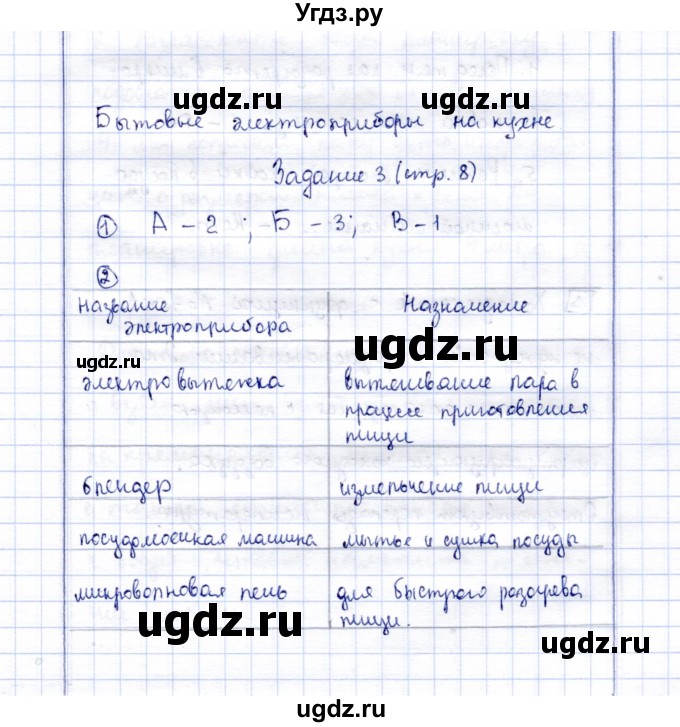 Угдз.ру
ugdz.ru ugdz.ru
Бытовые электроприборы на кухне
Задание 3 (стр. 8)
① А – 2 ; Б – 3; В – 1
②
Название Назначение
электроприбора
ugdz.ru ugdz.ru
электровытяжка вытягивание пара в
процессе приготовления
пищи
блендер измельчение пищи
посудомоечная машина мытьё и сушка посуды
микроволновая печь для быстрого разогрева
пищи.
ugdz.ru ugdz.ru
ugdz.ru